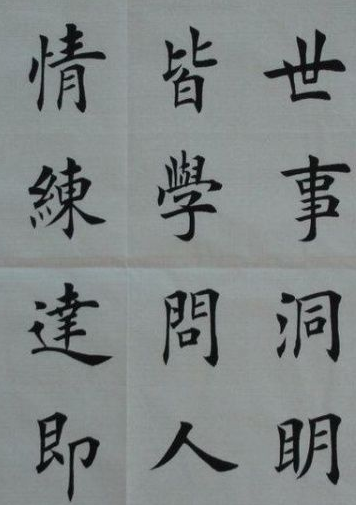 世事洞明
皆學問人
情練達即